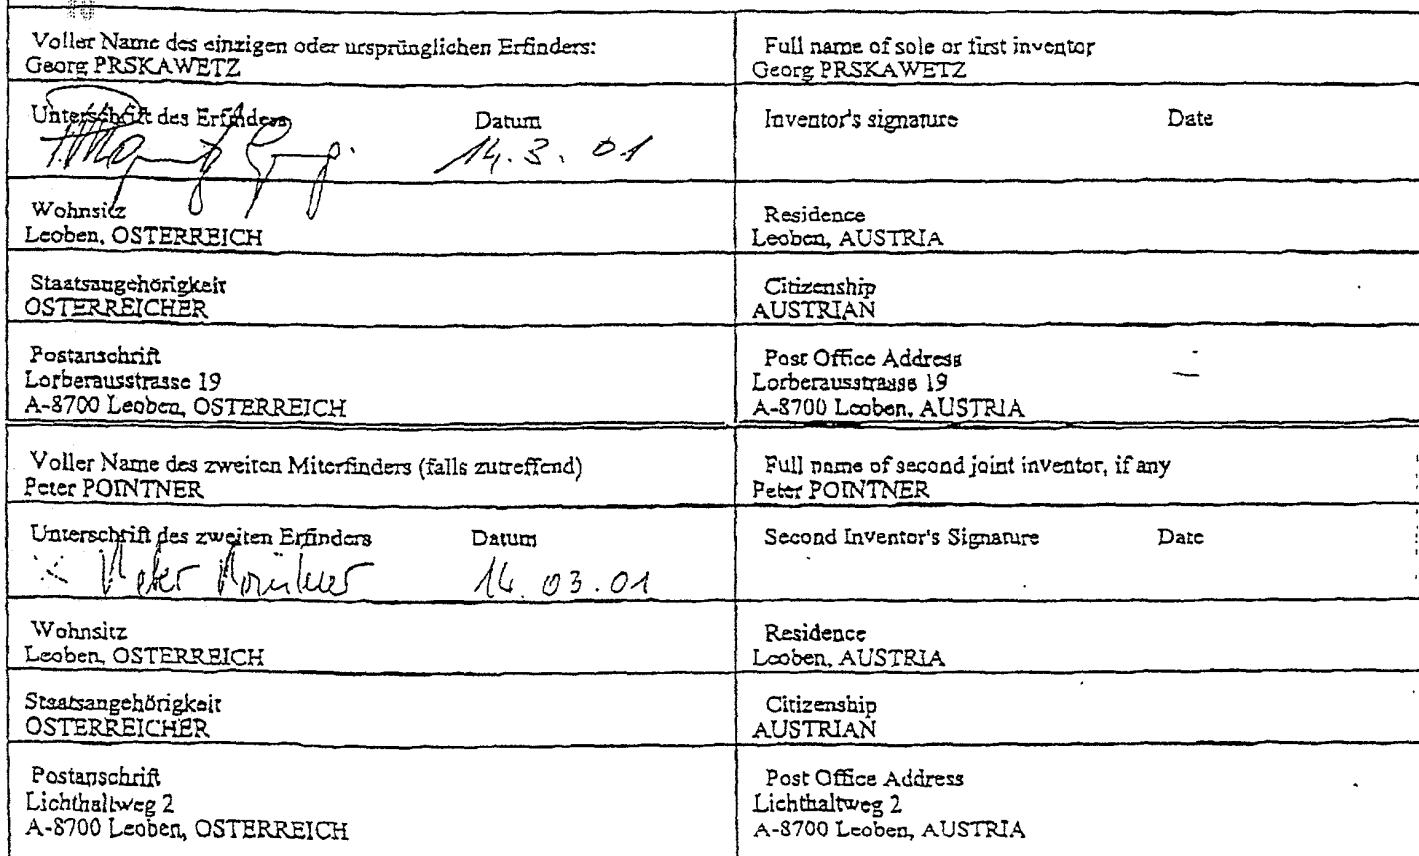 Voller Name des einzigen oder ursprünglichen Erfinders:
Georg PRSKAWETZ
Full name of sole or first inventor
Georg PRSKAWETZ
Unterschrift des Erfinders
Datum
14.3.01
Inventor's signature
Date
Wohnsitz
Leoben, OSTERREICH
Residence
Leoben, AUSTRIA
Staatsangehörigkeit
OSTERREICHER
Citizenship
AUSTRIAN
Postanschrift
Lorberausstrasse 19
A-8700 Leoben, OSTERREICH
Post Office Address
Lorberausstrasse 19
A-8700 Leoben, AUSTRIA
Voller Name des zweiten Miterfinders (falls zutreffend)
Peter POINTNER
Full name of second joint inventor, if any
Peter POINTNER
Unterschrift des zweiten Erfinders
Datum
Peter Pointner
14.03.01
Second Inventor's Signature
Date
Wohnsitz
Leoben, OSTERREICH
Residence
Leoben, AUSTRIA
Staatsangehörigkeit
OSTERREICHER
Citizenship
AUSTRIAN
Postanschrift
Lichthaltweg 2
A-8700 Leoben, OSTERREICH
Post Office Address
Lichthaltweg 2
A-8700 Leoben, AUSTRIA